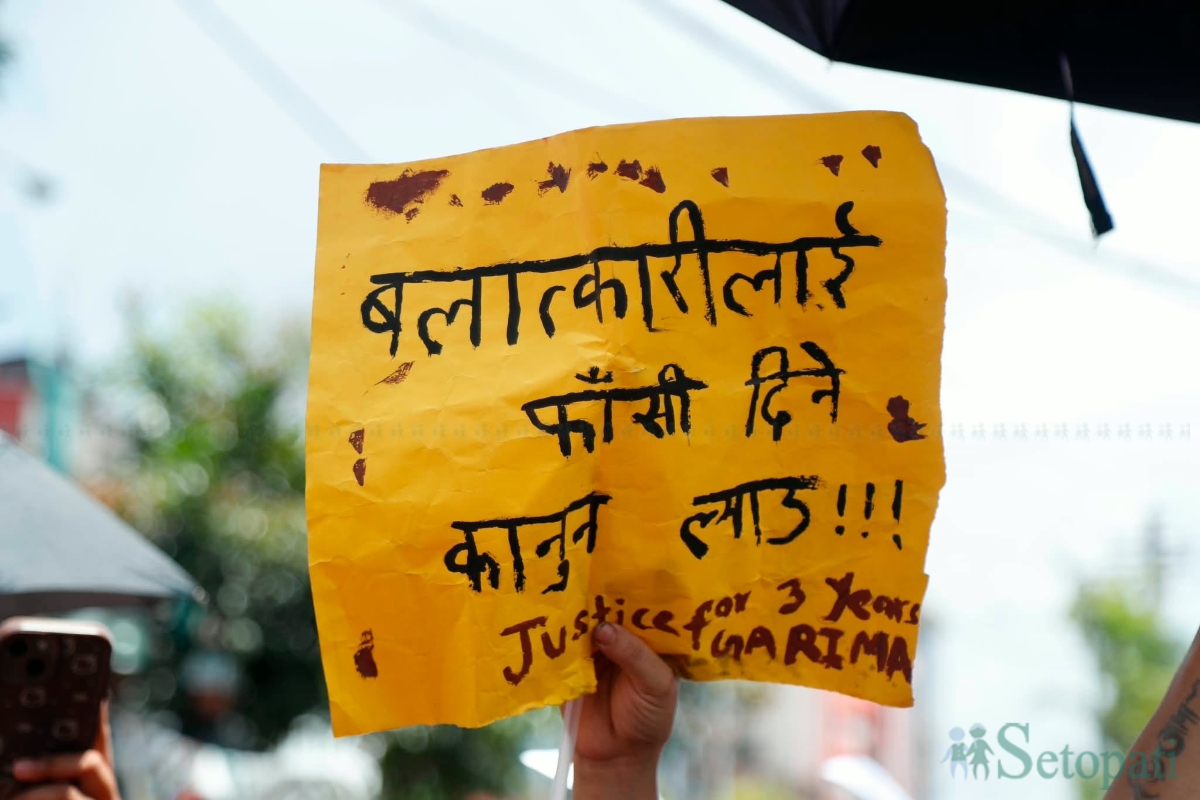 बलात्कारीलाई
फाँसी दिने
कानुन ल्याउ!!!
Justice for 3 Years
GARIMA
Setopati